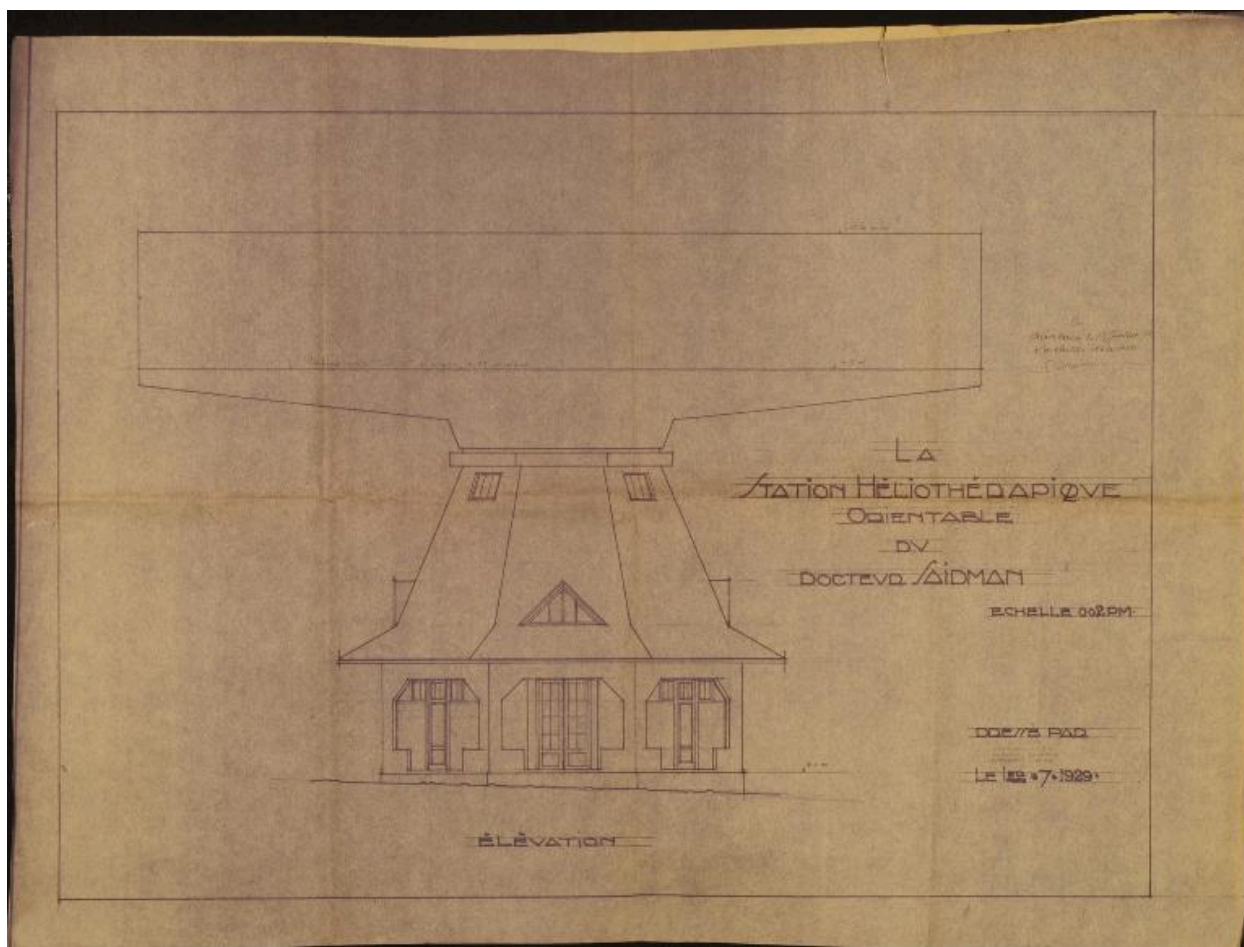 LA
STATION HÉLIOTHÉRAPIQVE
ORIENTABLE
DV
DOCTEVR SAIDMAN
ECHELLE 0.02 P.M.
DRESSÉ PAR
LE 1ER.7.1929.
ÉLÉVATION